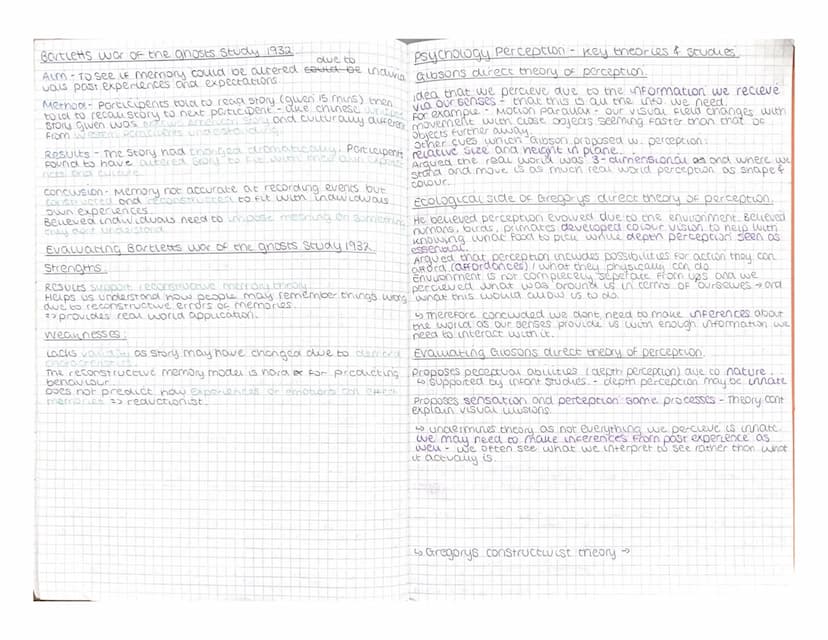 Bartletts war of the ghosts study 1932
due to
Aim - To see if memory could be altered could be individ
uals past experiences and expectations.
Method - Participants told to read story (given 15 mins) then
told to recall story to next participant - like chinese
story given was and culturally different
from western participants understanding.
Results - The story had changed dramatically. Participant
found to have altered story to fit with their own experie
nces and culture.
Conclusion - Memory not accurate at recording events but
constructed and reconstructed to fit with individuals
own experiences.
Believed individuals need to impose meaning on something
they dont understand.
Evaluating Bartletts war of the ghosts study 1932.
Strengths.
Results support reconstructive memory theory.
Helps us understand how people may remember things wrong
due to reconstructive errors of memories.
=> provides real world application.
Weaknesses:
Lacks validity as story may have changed due to demand
characteristics.
The reconstructive memory model is hard for predicting
behaviour.
Does not predict how experiences or emotions can effect
memories => reductionist.
Psychology Perception - Key theories & studies
Gibsons direct theory of perception.
Idea that we percieve due to the information we recieve
via our senses - that this is all the info. we need.
For example - Motion Parallax - our visual field changes with
movement with close objects seeming faster than that of
objects further away.
Other cues which Gibson proposed w. perception:
relative size and height in plane.
Argued the real world was 3-dimensional and where we
stand and move is as much real world perception as shape &
colour.
Ecological side of Gregorys direct theory of perception.
He believed perception evolved due to the environment. Believed
humans, birds, primates developed colour vision to help with
knowing what food to pick while depth perception seen as
essential.
Argued that perception includes possibilities for action they can
afford (affordances) / what they physically can do.
Environment is not completely seperate from ups and we
percieved what was around us in terms of ourselves → and
what this would allow us to do.
↳ Therefore concluded we dont need to make inferences about
the world as our senses provide us with enough information we
need to interact with it.
Evaluating Gibsons direct theory of perception.
Proposes peceptual abilities (depth perception) due to nature.
↳ Supported by infant studies. - depth perception may be innate
Proposes sensation and perception same processes - Theory cant
explain visual illusions.
↳ undermines theory as not everything we percieve is innate.
We may need to make inferences from past experience as
well - we often see what we interpret to see rather than what
it actually is.
↳ Gregorys constructivist theory →